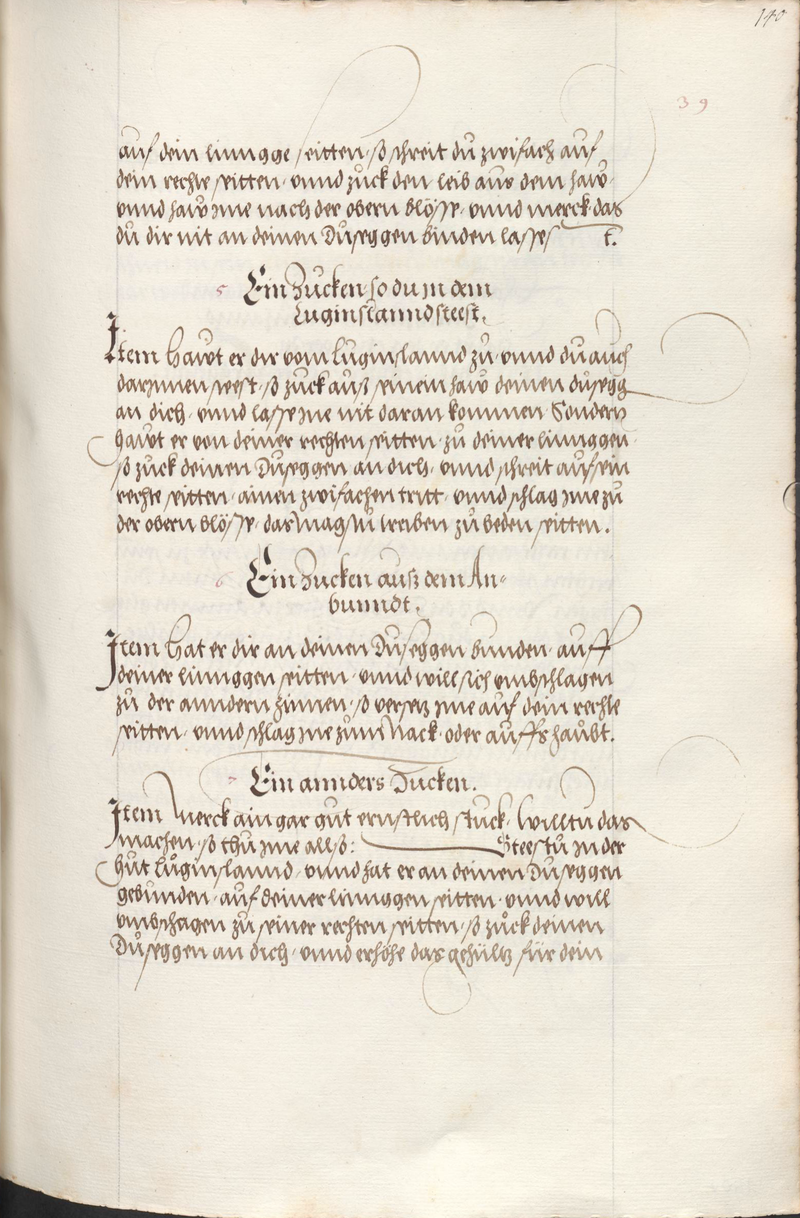 140
39
auf dein linngge seitten, so schreit du zwifach auf
dein rechte seitten, vnnd zuck den leib aus dem haw
vnnd haw jme nach der obern blösse, vnnd merck das
du dir nit an deinen Duseggen binden lasses t.
5 Ein Zucken so du in dem
Luginslannd steest.
Item Hawt er dir vom Luginslannd zu, vnnd du auch
darjnnen seest, so zuck auß seinem haw deinen dusegg
an dich, vnnd lass jme nit daran kommen Sondern
hawt er von deiner rechten seitten, zu deiner linnggen
so zuck deinen Duseggen an dich, vnnd schreit auf sein
rechte seitten, ainen zwifachen tritt, vnnd schlag jme zu
der obern blösse, das magstu treiben zu beden seitten.
6 Ein Zucken auß dem An-
bunndt.
Item Hat er dir an deinen Duseggen bunden, auff
deiner linnggen seitten, vnnd will sich vmbschlagen
zu der anndern Zinnen, so versetz jme auf dein rechte
seitten, vnnd schlag jne zum Nack, oder auffs haubt.
7 Ein annders Zucken.
Item Merck ain gar gut ernstlich stuck, Willtu das
machen, so thu jme allso: Steestu in der
hut Luginslannd, vnnd hat er an deinen Duseggen
gebunden, auf deiner linnggen seitten, vnnd will
vmbschagen zu seiner rechten seitten, so zuck deinen
Duseggen an dich, vnnd erhöhe das gehültz für dein